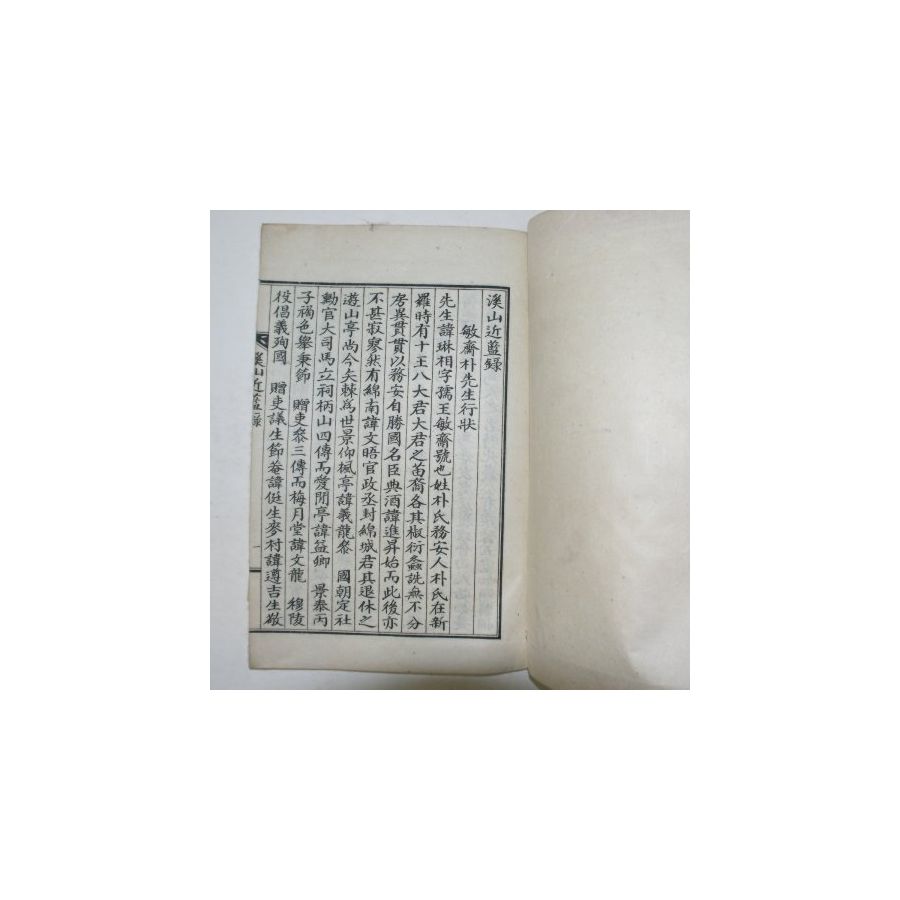 溪山近藍錄
敏齋朴先生行狀
先生諱琳相字孺王敏齋號也姓朴氏務安人朴氏在新
羅時有十王八大君大君之苗裔各其椒衍螽詵無不分
居異貫貫以務安自勝國名臣典酒諱進昇始而此後亦
不甚寂寥然有綿南諱文晤官政丞封綿城君其退休之
遊山亭尚今矢棘爲世景仰楓亭諱義龍叅 國朝定社
勳官大司馬立祠柄山四傳而愛閒亭諱益卿 景泰丙
子禍色擧秉節 贈吏叅三傳而梅月堂諱文龍 穆陵
役倡義殉國 贈吏議生節菴諱侹生麥村諱遵吉生敬
溪山近藍錄
一